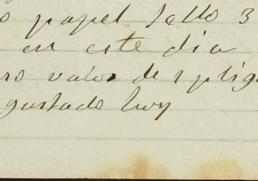 o papel sello 3
en este dia
ro valor de 1 plig
gastado hoy